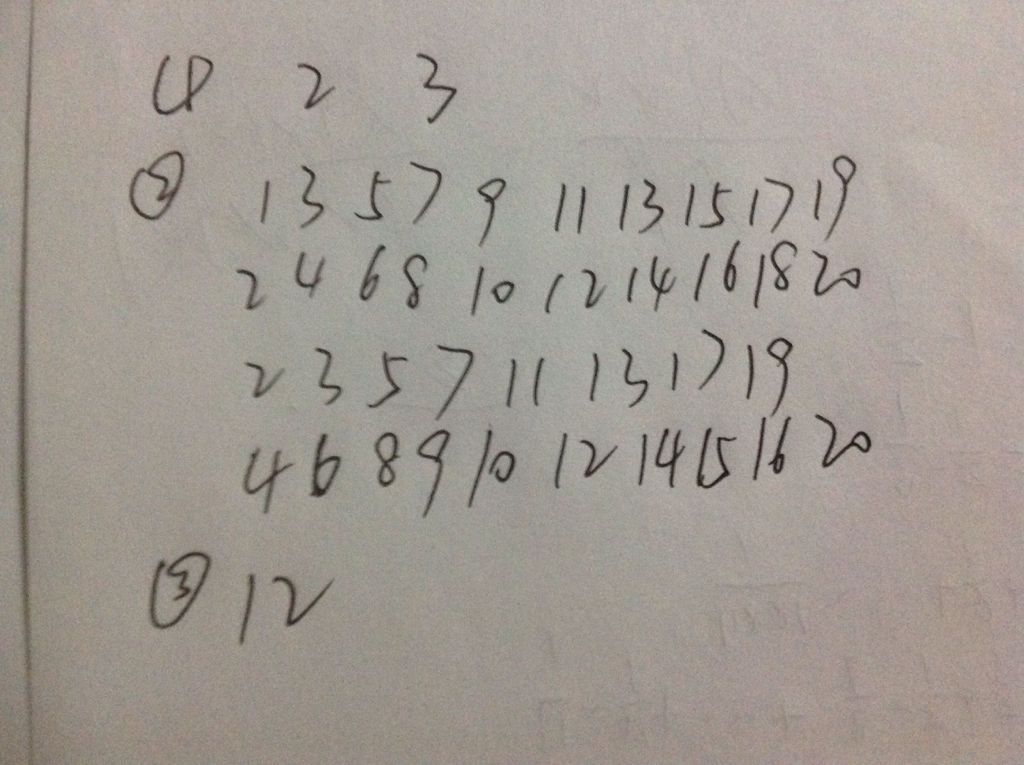 ① 2 3
② 1 3 5 7 9 11 13 15 17 19
2 4 6 8 10 12 14 16 18 20
2 3 5 7 11 13 17 19
4 6 8 9 10 12 14 15 16 20
③ 12